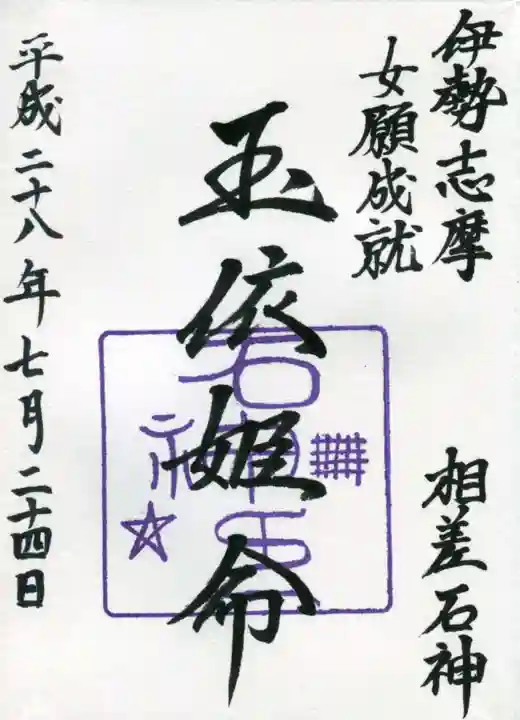 伊勢志摩
女願成就
相差石神
玉依姫命
石神
平成二十八年七月二十四日